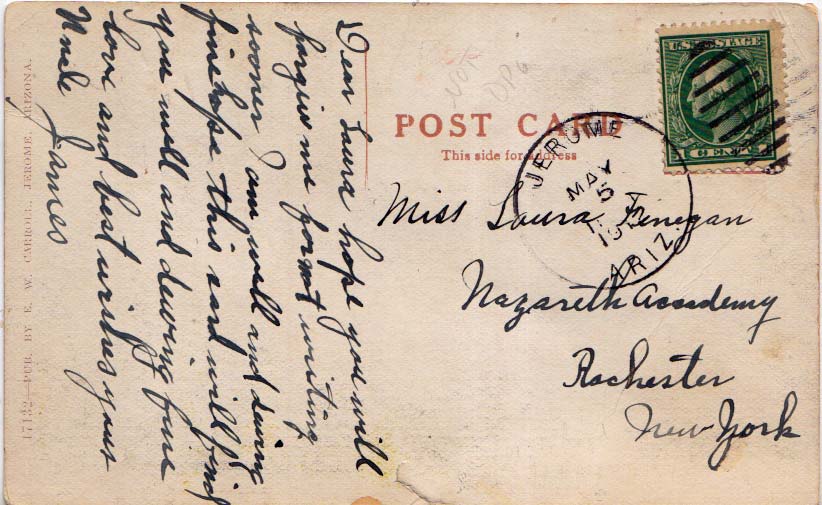 Dear Laura hope you will
forgive me for not writing
sooner I am well and dewing
fine hope this card will find
you well and dewing fine
love and best wishes your
Uncle James
POST CARD
This side for address
U.S. POSTAGE
1 CENT 1
JEROME
MAY
5
ARIZ.
Miss Laura Finegan
Nazareth Accademy
Rochester
New York
17132—PUB. BY E. W. CARROLL, JEROME, ARIZONA.